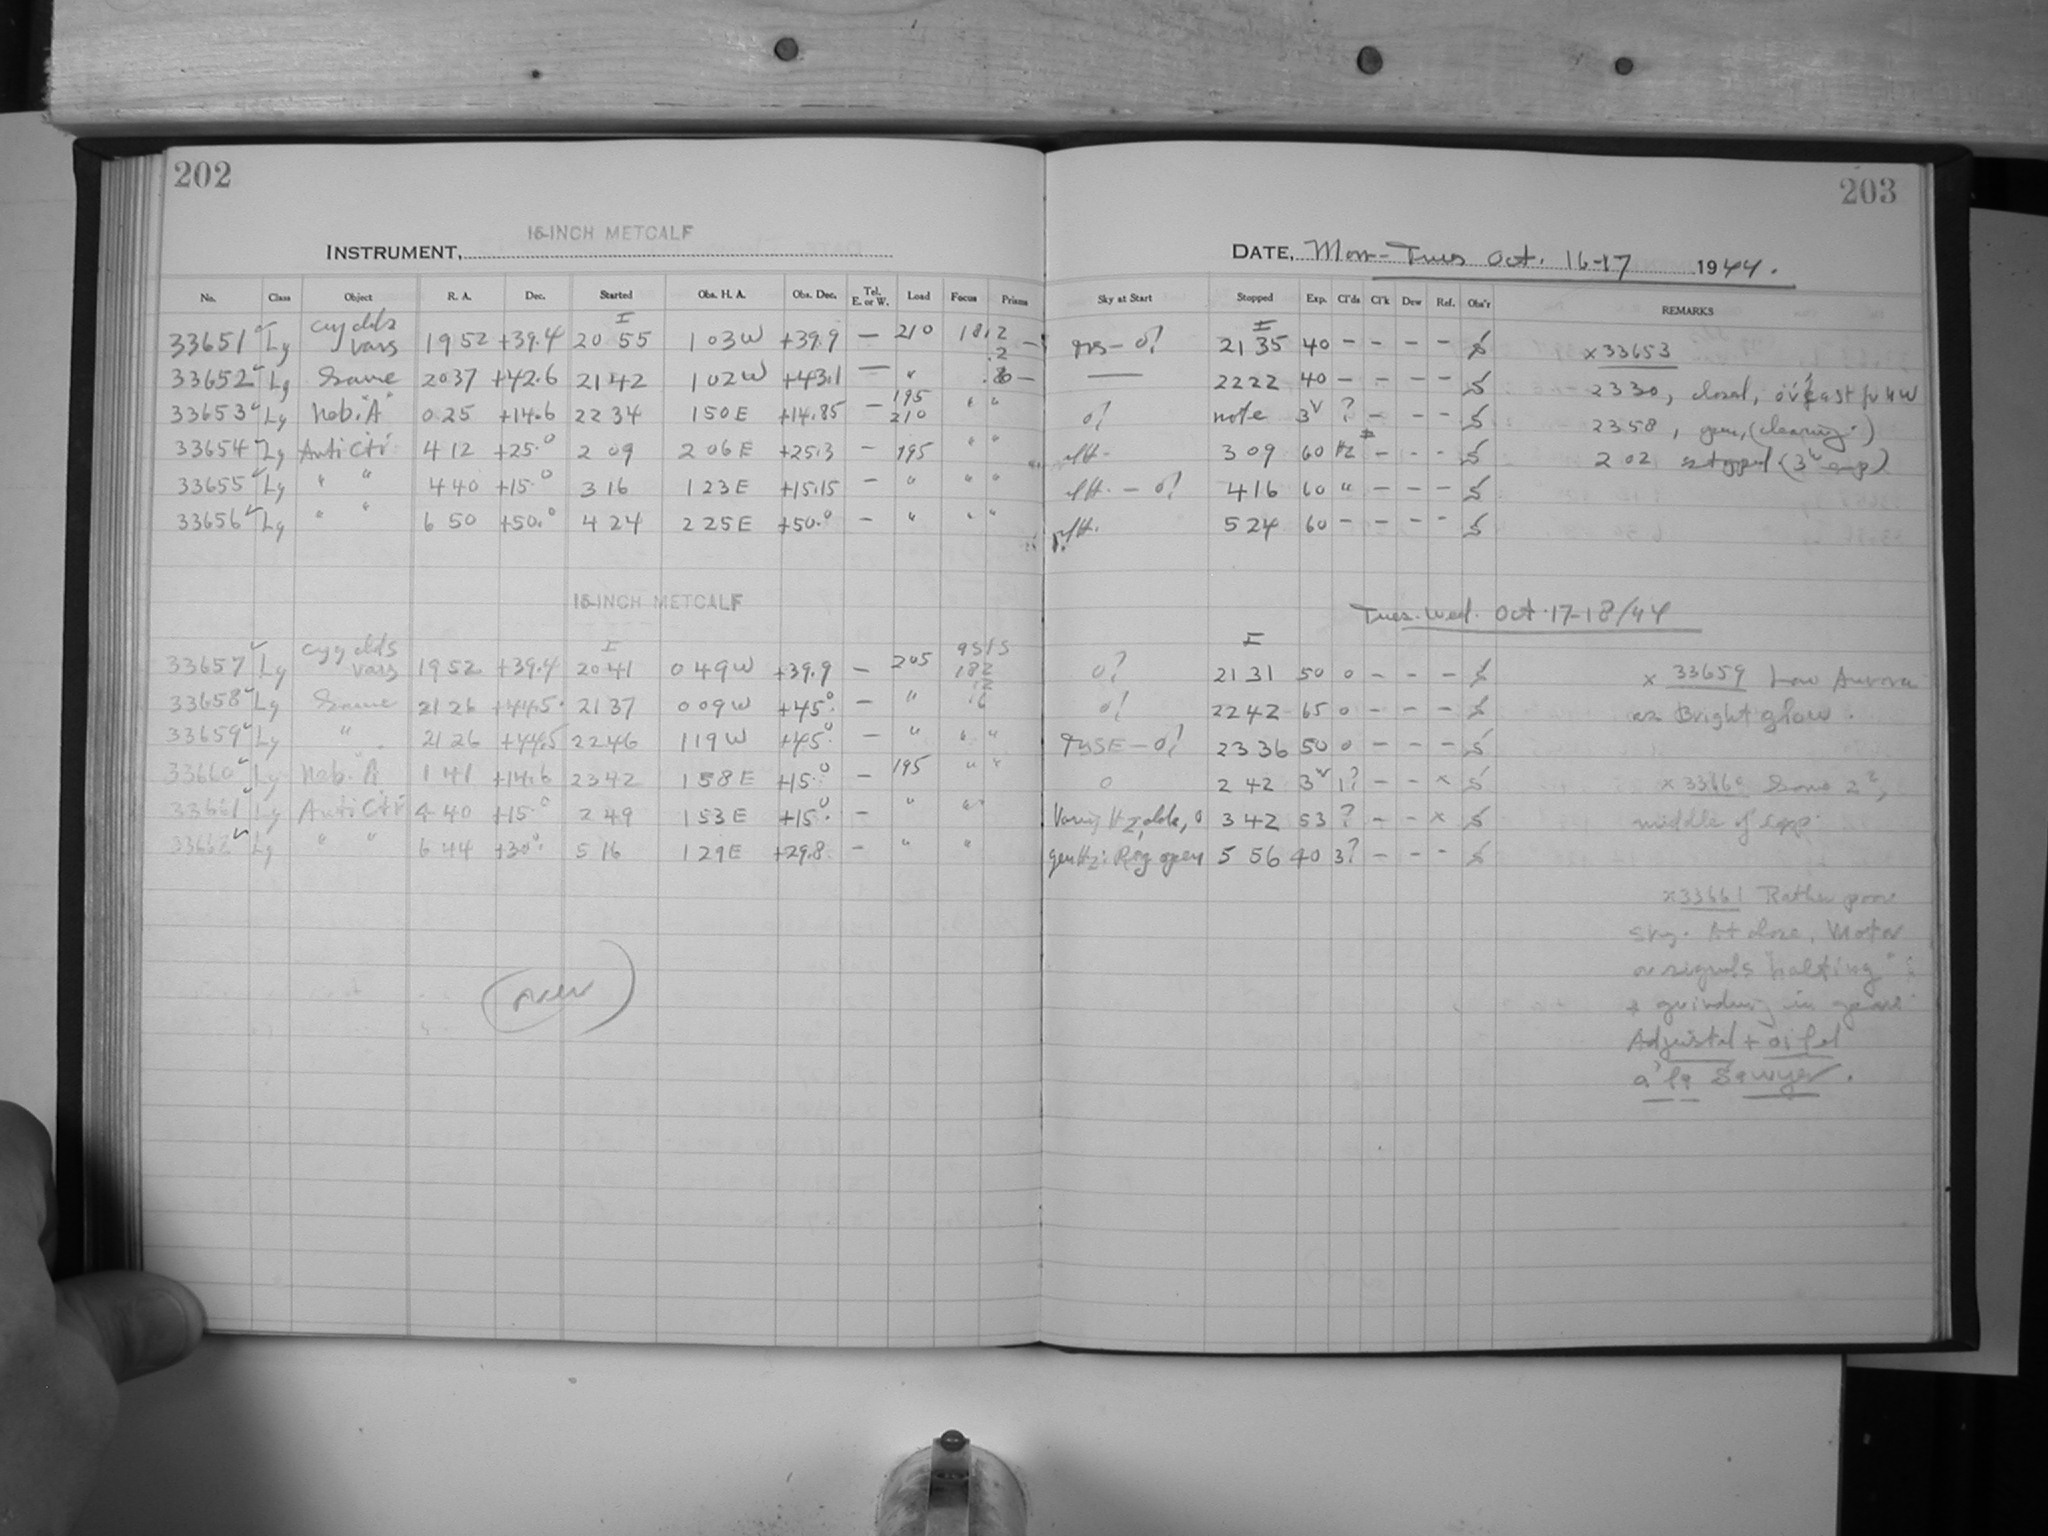 202
203
16-INCH METCALF
INSTRUMENT,
DATE, Mon-Tues Oct. 16-17 1944.
No. Class Object R. A. Dec. Started Obs. H. A. Obs. Dec. Tel. E. or W. Load Focus Prisms Sky at Start Stopped Exp. Cl'ds Cl'k Dew Ref. Obs'r REMARKS
33651 Ly cyg clds vars 19 52 +39.4 20 55 1 03 W +39.9 — 210 18.2 .2 — 21 35 40 - - - - x 33653
33652 Ly Same 20 37 +42.6 21 42 1 02 W +43.1 — " — 22 22 40 - - - - 2330, closed,
33653 Ly Neb. "A" 0 25 +14.6 22 34 1 50 E +14.85 — 195 210 " " o? note 3 ? - - - 2358, (clearing.)
33654 Ly Anti Ctr 4 12 +25.0 2 09 2 06 E +25.3 — 195 " " 3 09 60 Hz - - - 2 02 stopped (3 exp)
33655 Ly " " 4 40 +15.0 3 16 1 23 E +15.15 — " " " 4 16 60 " - - -
33656 Ly " " 6 50 +50.0 4 24 2 25 E +50.0 — " " " 5 24 60 - - - -
16-INCH METCALF
Tues-Wed. Oct. 17-18/44
33657 Ly cyg clds vars 19 52 +39.4 20 41 0 49 W +39.9 — 205 182 o? 21 31 50 0 - - - x 33659 Low Aurora
33658 Ly Same 21 26 +44.5 21 37 0 09 W +45.0 — " o? 22 42 65 0 - - - as Bright glow.
33659 Ly " 21 26 +44.5 22 46 1 19 W +45.0 — " " " 23 36 50 0 - - -
33660 Ly Neb. "A" 1 41 +14.6 23 42 1 58 E +15.0 — 195 " " 0 2 42 3 1? - - x x 33660 Some
33661 Ly Anti Ctr 4 40 +15.0 2 49 1 53 E +15.0 — " " 3 42 53 ? - - x middle of exp.
33662 Ly " " 6 44 +30.0 5 16 1 29 E +29.8 — " " gen Hz: Reg open 5 56 40 3? - - -
x 33661 Rather poor
sky. At close, Motor
or signals "halting"
+ grinding in gears
Adjusted + oiled
a' la Sawyer.
(over)